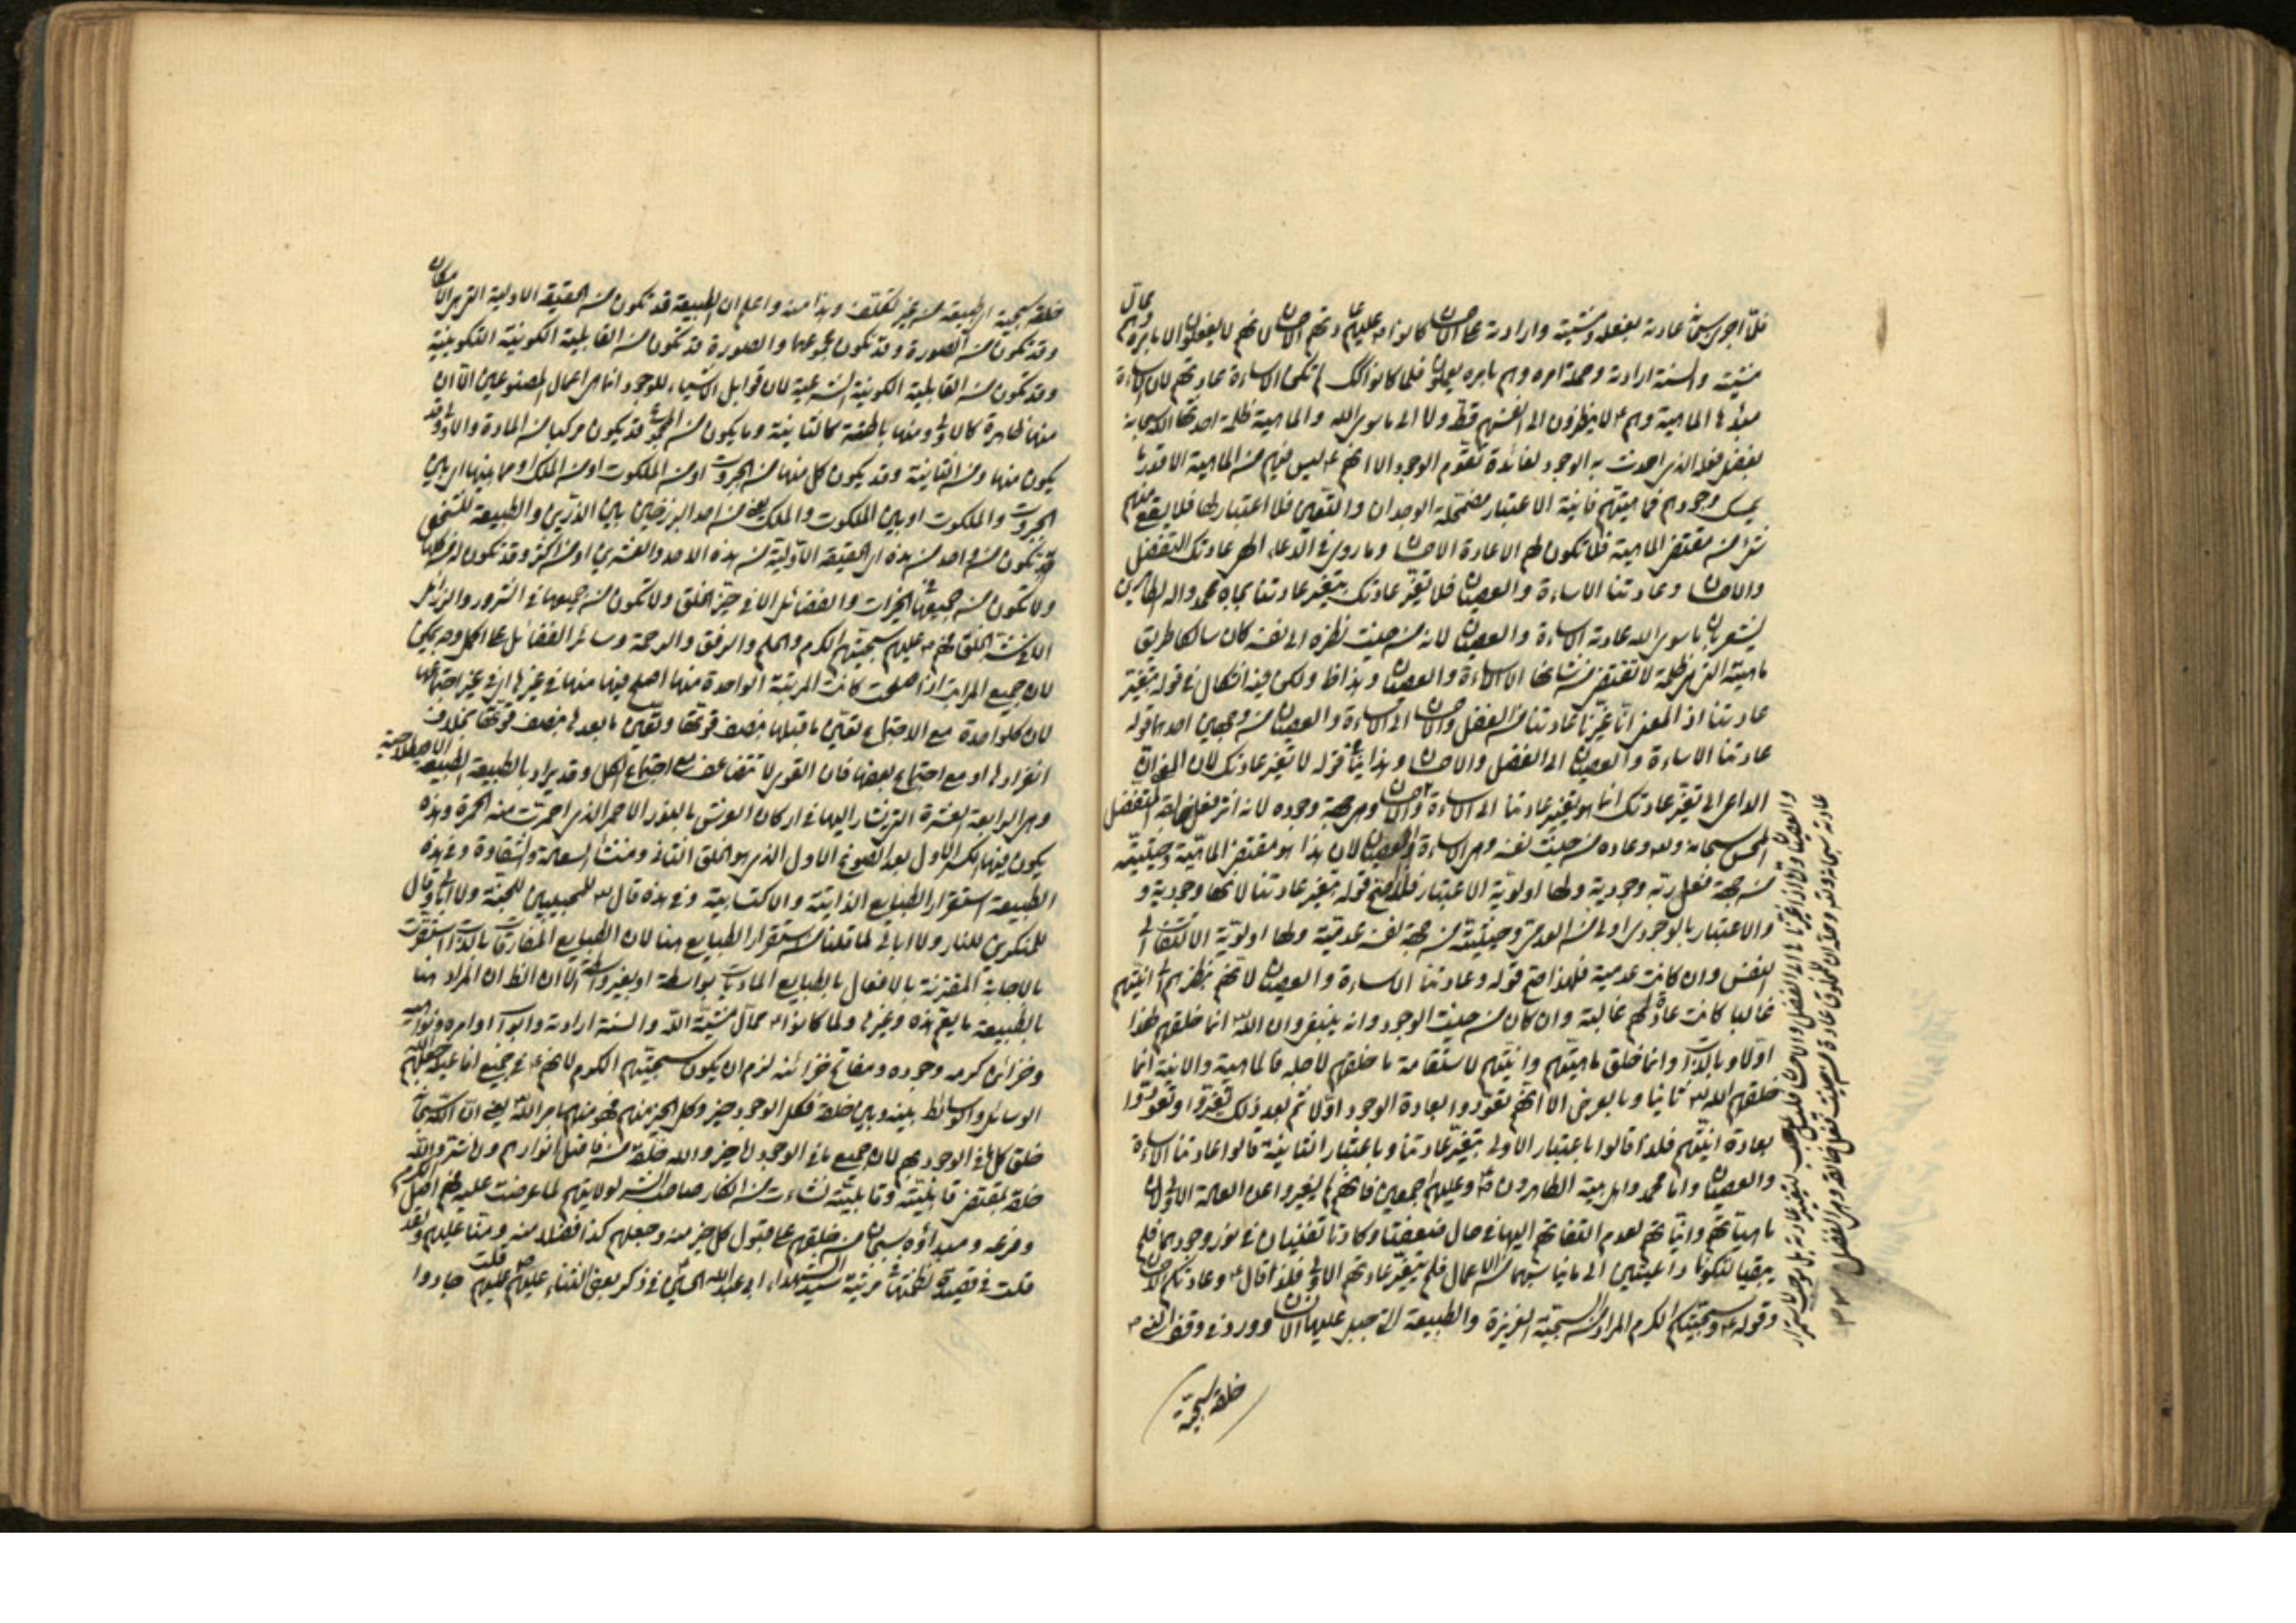 فلما اجرى سبحانه عادته بفعله ومشيته وارادته على الاحسان كانوا عليهم عادتهم الاحسان لانهم لا يفعلون الا بامره وهم محال
مشيته والسنة ارادته وحملة امره وهم بامره يعملون فلما كانوا كذلك لم تكن الاساءة عادتهم لان الاساءة
مبدؤها الماهية وهم لا ينظرون الى انفسهم قط ولا الى ما سوى الله والماهية ظلمة احدثها الله سبحانه
بفضل فعله الذي احدث به الوجود لفائدة تقوم الوجود الا انهم ليس فيهم من الماهية الا قدر ما
يمسك وجودهم فماهيتهم فانية الاعتبار مضمحلة الوجدان والتعين فلا اعتبار لها فلا يقع منهم
شيء من مقتضى الماهية فلا تكون لهم الا عادة الاحسان وما روي في الدعاء الهي عادتك التفضل
والاحسان وعادتنا الاساءة والعصيان فلا تغير عادتك بتغير عادتنا بجاه محمد واله الطاهرين
يشعر بان ما سوى الله عادته الاساءة والعصيان لانه من حيث نظره الى نفسه كان سالكا طريق
ماهيته التي هي ظلمة لا تقتضي من شانها الا الاساءة والعصيان وهذا ظاهر ولكن فيه اشكال في قوله بتغير
عادتنا اذ المعنى انا غيرنا عادتنا من الفضل والاحسان الى الاساءة والعصيان من وجهين احدهما قوله
عادتنا الاساءة والعصيان الى الفضل والاحسان وهذا ينافي قوله لا تغير عادتك لان المعنى ان
الداعي الى تغير عادتك انما هو بتغير عادتنا الى الاساءة والاحسان وهي جهة وجوده لانه اثر فعل خالقه المتفضل
المحسن سبحانه وله وعاده من حيث نفسه وهي الاساءة والعصيان لان هذا هو مقتضى الماهية وحيثيته
من جهة فعل ربه وجودية ولها اولوية الاعتبار فلذا صح قوله بتغير عادتنا لانها وجودية و
والاعتبار بالوجودي اولى من العدمي وحيثيته من جهة نفسه عدمية ولها اولوية الالتفات الى
النفس وان كانت عدمية فلهذا صح قوله وعادتنا الاساءة والعصيان لانهم نظرهم الى انيتهم
غالبا كانت عادة لهم غالبة وان كان من حيث الوجود وانه ينبغي وان الله انما خلقهم لهذا
اولا وبالذات وانما خلق ماهيتهم وانيتهم لاستقامة ما خلقهم لاجله فالماهية والانية انما
خلقهم الله ثانيا وبالعرض الا انهم تعودوا لعادة الوجود اولا ثم بعد ذلك تغيروا وتعودوا
بعادة انيتهم فلذا قالوا باعتبار الاولى بتغير عادتنا وباعتبار الثانية قالوا عادتنا الاساءة
والعصيان واما محمد واهل بيته الطاهرون صلى الله عليه وعليهم اجمعين فانهم لم يتغيروا عن العادة الاولى لان
ماهياتهم وانياتهم لعدم التفاتهم اليها في حال ضعفتا وكادتا تفنيان في نور وجودهما فلم
يبقيا لتكونا داعيتين الى ما يناسبهما من الاعمال فلم يتغير عادتهم الاولى فلذا قال وعادتكم الاحسان
وقوله وسجيتكم الكرم المراد من السجية الغريزة والطبيعة التي جبل عليها الانسان وورد في
خلقه سجية
والعصيان وان اذا غيرنا الى الفضل والاحسان فليس لتغير عادته بل موجب لاستمرار
عادته سبحانه وله وعادة من حيث فعل خالقه وهي الفضل
خلقه سجية اي طبيعة من غير تكلف وهذا منه واعلم ان الطبيعة قد تكون من الحقيقة الاولية التي هي الامكان
وقد تكون من الصورة وقد تكون من مجموعهما والصورة قد تكون من القابلية الكونية التكوينية
وقد تكون من القابلية الكونية الشرعية لان قوابل الاشياء للوجود انما هي اعمال المصنوعين الا ان
منها ظاهرة كالاولى ومنها باطنة كالثانية وما يكون من المجموع قد يكون مركبا من المادة والاولى وقد
يكون منها ومن الثانية وقد يكون كل منها من الجبروت او من الملكوت او من الملك او مما بينها اي بين
الجبروت والملكوت او بين الملكوت والملك يعني من احد البرزخين بين الذرين والطبيعة للشخص
قد تكون من واحد من هذه اي الحقيقة الاولية من هذه الاحد والعشرين او من اكثر وقد تكون له من كلها
ولا تكون من جميعها في الخيرات والفضائل الا في خير الخلق ولا تكون من جميعها في الشرور والرذائل
الا في شر الخلق فهم عليهم سجيتهم الكرم والحلم والرفق والرحمة وسائر الفضائل على اكمل وجه يمكن
لان جميع المراتب اذا صلحت كانت المرتبة الواحدة منها اصلح فيها منها في غيرها اي في غير اجتماعها
لان كل واحدة مع الاجتماع تعين ما قبلها بنصف قوتها وتعين ما بعدها بنصف قوتها بخلاف
انفرادها او مع اجتماع بعضها فان القوى لا تتضاعف مع اجتماع الكل وقد يراد بالطبيعة الطبيعة الاصطلاحية
وهي الرابعة العشرة التي يشار اليها في اركان العرش بالنور الاحمر الذي احمرت منه الحمرة وهذه
يكون فيها الكسر الاول بعد الصوغ الاول الذي هو الخلق الثاني ومنشأ السعادة والشقاوة وفي هذه
الطبيعة استقرار الطبايع الذاتية والاكتسابية وفي هذه قال للمجيبين للجنة ولا ابالي وقال
للمنكرين للنار ولا ابالي لما قلنا من استقرار الطبايع هنا لان الطبايع المفارقات بالذات استقرت
بالاجابة المقترنة بالافعال بالطبايع الماديات بواسطة او بغير واسطة الا ان الظاهر ان المراد هنا
بالطبيعة ما يعم هذه وغيرها ولما كانوا محال مشية الله والسنة ارادته وابواب اوامره ونواهيه
وخزائن كرمه وجوده ومفاتح خزائنه لزم ان يكون سجيتهم الكرم لانهم في جميع افاعيله جعلهم الله
الوسائل والوسائط بينه وبين خلقه فكل الوجود خير وكل الخير منهم فهو منهم بامر الله يعني ان الله سبحانه
خلق كل ما في الوجود بهم لان جميع ما في الوجود اما خير والله خلقه من فاضل انوارهم واما شر والله
خلقه بمقتضى قابليته وقابليته نشأت من انكار صاحب الشر لولايتهم لما عرضت عليه فهم اصل الكرم
وفرعه ومبدؤه سبحان من خلقهم على قبول كل خير منه وجعلهم كذا فضلا منه ومنا عليهم ولقد
قلت في قصيدة نظمتها في مرثية سيد الشهداء ابي عبد الله الحسين في ذكر بعض الثناء عليهم قلت عليهم جادوا